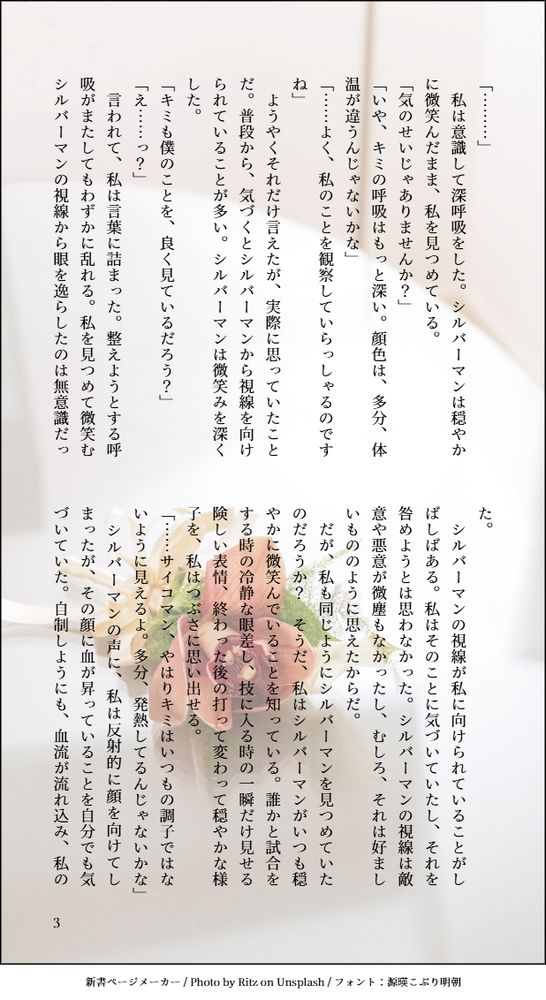 「………」
　私は意識して深呼吸をした。シルバーマンは穏やか
に微笑んだまま、私を見つめている。
「気のせいじゃありませんか？」
「いや、キミの呼吸はもっと深い。顔色は、多分、体
温が違うんじゃないかな」
「……よく、私のことを観察していらっしゃるのです
ね」
　ようやくそれだけ言えたが、実際に思っていたこと
だ。普段から、気づくとシルバーマンから視線を向け
られていることが多い。シルバーマンは微笑みを深く
した。
「キミも僕のことを、良く見ているだろう？」
「え……っ？」
　言われて、私は言葉に詰まった。整えようとする呼
吸がまたしてもわずかに乱れる。私を見つめて微笑む
シルバーマンの視線から眼を逸らしたのは無意識だっ
た。
　シルバーマンの視線が私に向けられていることがし
ばしばある。私はそのことに気づいていたし、それを
咎めようとは思わなかった。シルバーマンの視線は敵
意や悪意が微塵もなかったし、むしろ、それは好まし
いもののように思えたからだ。
　だが、私も同じようにシルバーマンを見つめていた
のだろうか？　そうだ、私はシルバーマンがいつも穏
やかに微笑んでいることを知っている。誰かと試合を
する時の冷静な眼差し、技に入る時の一瞬だけ見せる
険しい表情、終わった後の打って変わって穏やかな様
子を、私はつぶさに思い出せる。
「……サイコマン、やはりキミはいつもの調子ではな
いように見えるよ。多分、発熱してるんじゃないかな」
　シルバーマンの声に、私は反射的に顔を向けてし
まったが、その顔に血が昇っていることを自分でも気
づいていた。自制しようにも、血流が流れ込み、私の
3
新書ページメーカー / Photo by Ritz on Unsplash / フォント：源暎こぶり明朝